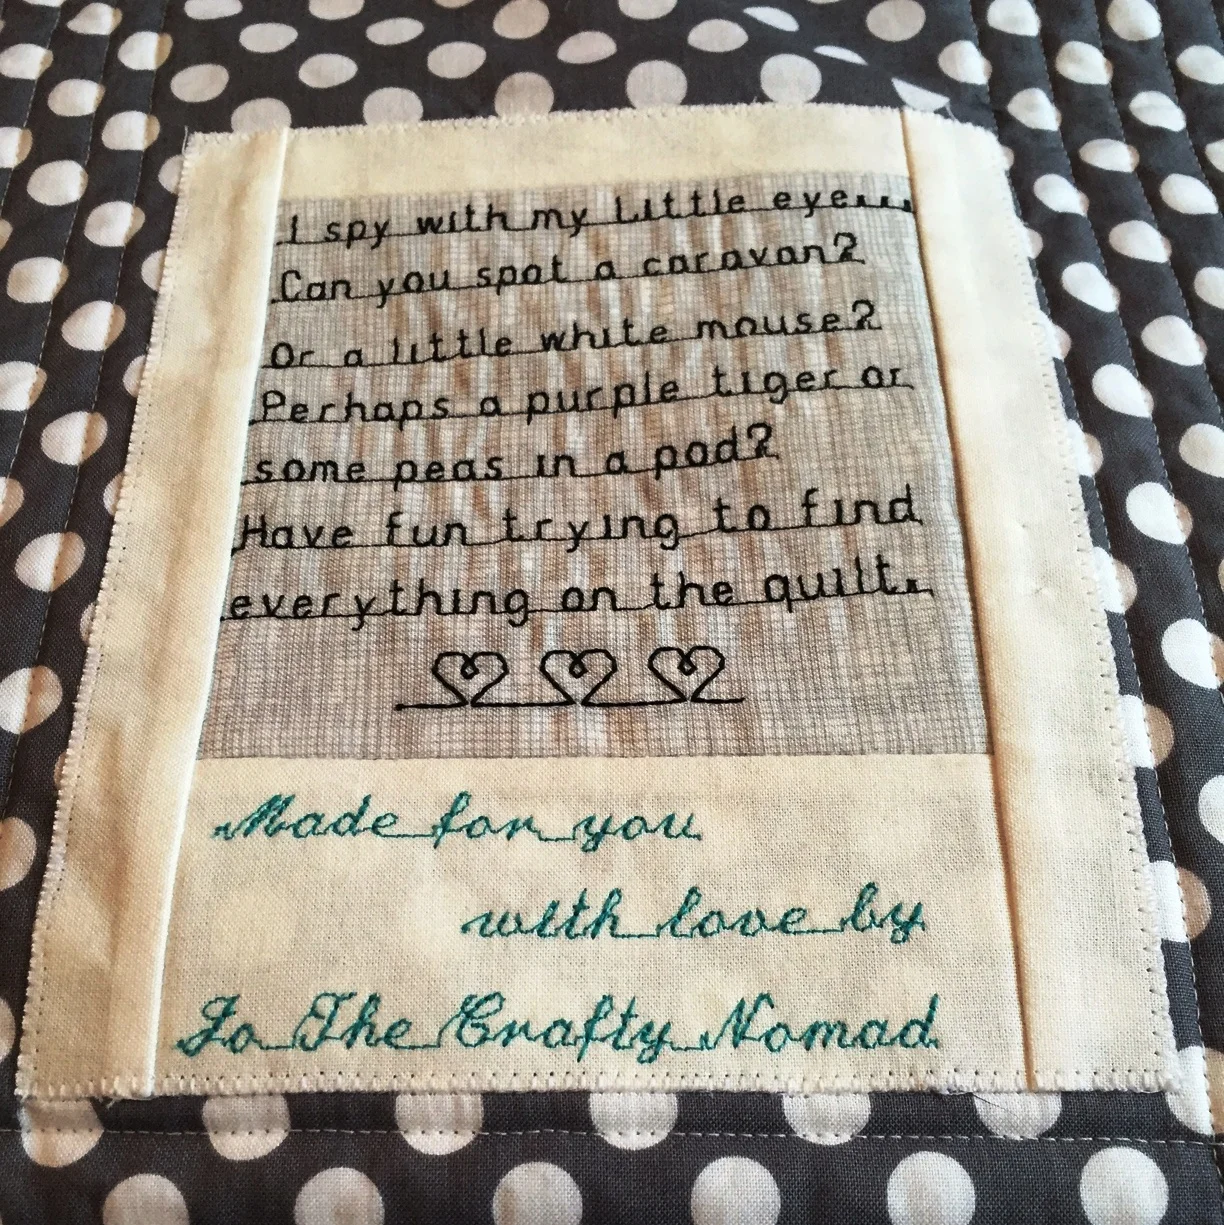 I spy with my little eye...
Can you spot a caravan?
Or a little white mouse?
Perhaps a purple tiger or
some peas in a pod?
Have fun trying to find
everything on the quilt.
Made for you
with love by
Jo The Crafty Nomad